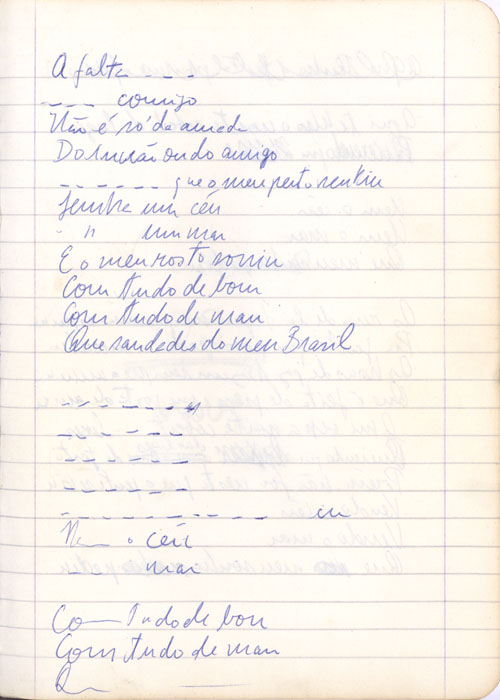 A falta - - -
- - - comigo
Não é só da amada
Do irmão ou do amigo
- - - - - - que o meu peito sentiu
Lembra um céu
" " um mar
E o meu rosto sorriu
Com tudo de bom
Com tudo de mau
Que saudades do meu Brasil
- - - - - - -
- - - - - -
- - - - - -
- - - - - -
- - - - - - - - - -
o céu
- - mar
Com tudo de bom
Com tudo de mau
Q